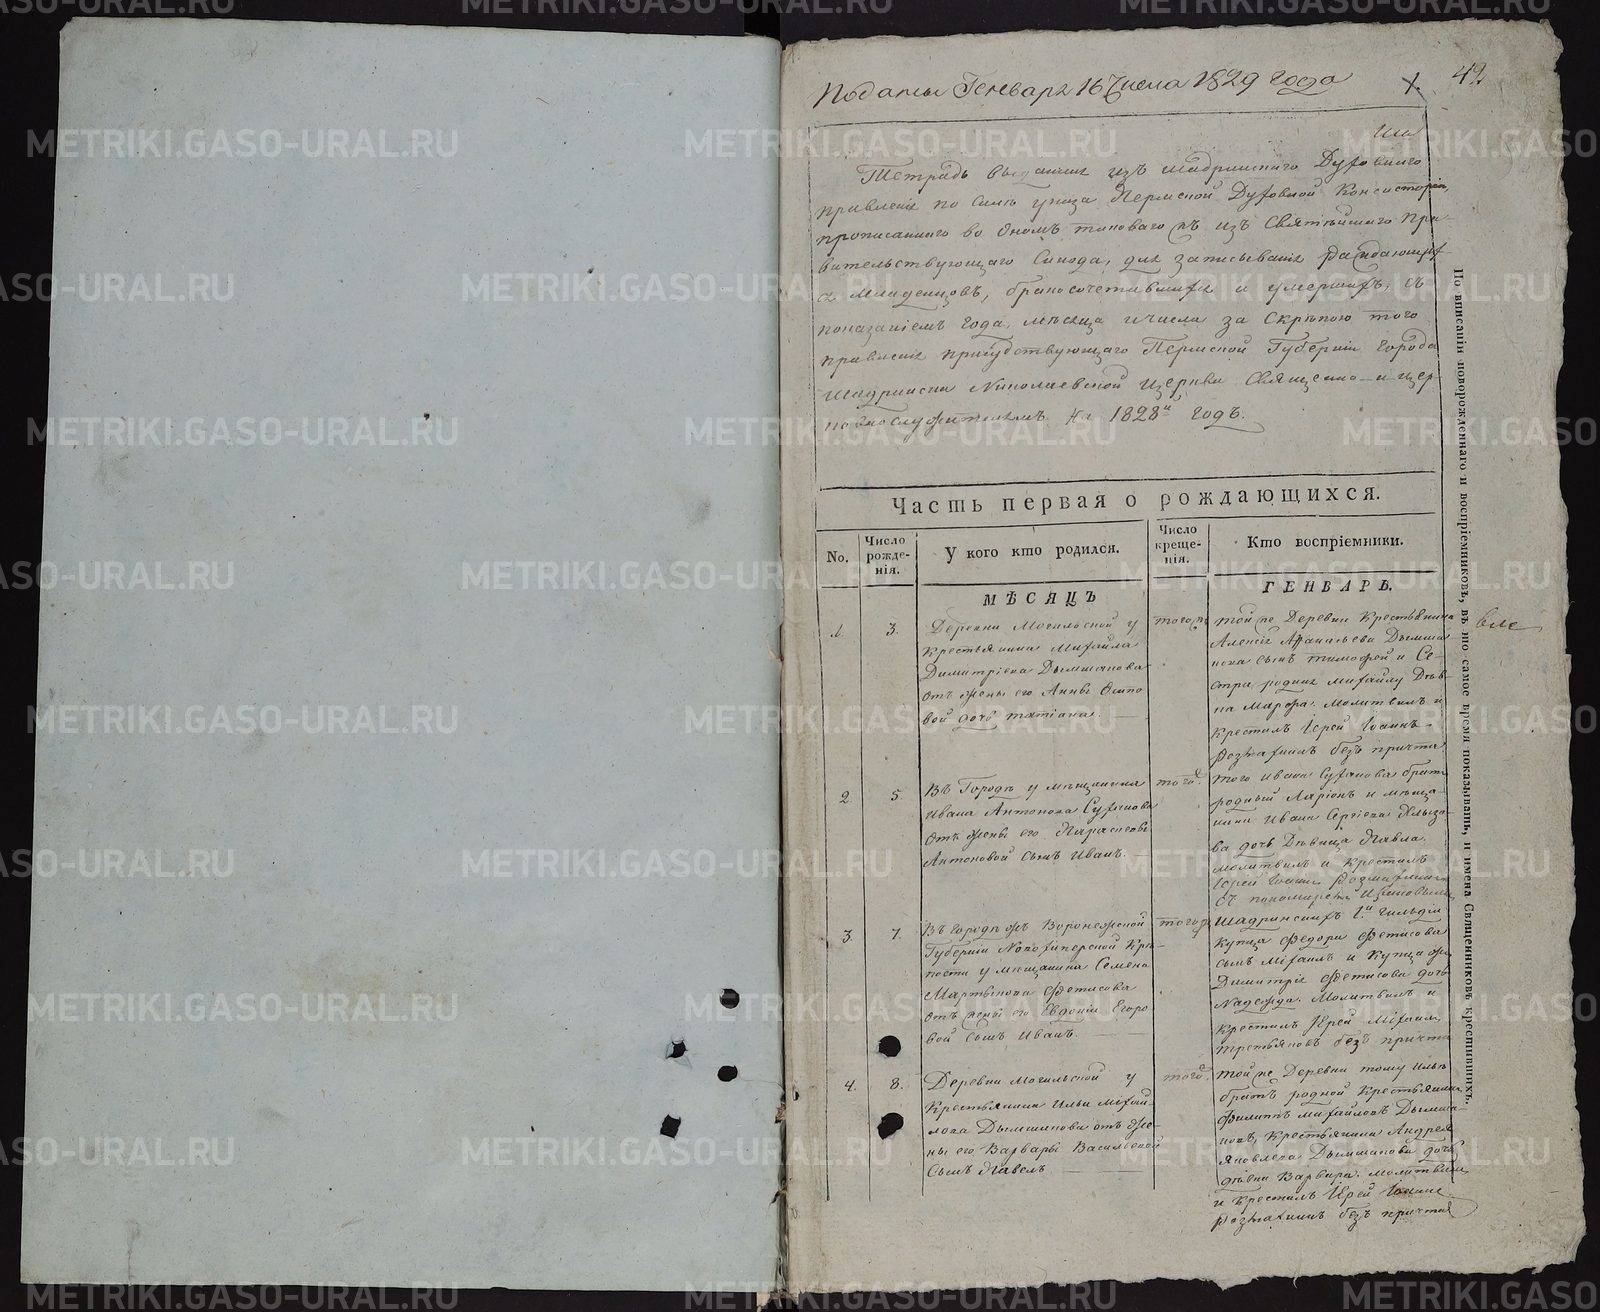 Поданы Генваря 16 Числа 1829 года
1.
42
Тетрадь выданная изъ Шадринскаго Духовнаго
правленія по силѣ указа Пермской Духовной Консисторіи,
прописаннаго во ономъ таковаго жъ изъ Святѣйшаго Пра-
вительствующаго Синода, для записыванія раждающихъ
ся младенцовъ, бракосочетавшихся и умершихъ, съ
показаніемъ года, мѣсяца и числа за скрѣпою того
правленія присудствующаго Пермской Губерніи города
Шадринска Николаевской церкви Священно- и цер-
ковнослужителямъ На 1828й годъ.
Часть первая о рождающихся.
No.
Число рожде-нія.
У кого кто родился.
Число креще-нія.
Кто воспріемники.
МѢСЯЦЪ
ГЕНВАРЬ.
1.
3.
Деревни Могильской у
Крестьянина Михайла
Димитріева Дымшакова
отъ жены его Анны Осипо
вой дочь татіана.
того жъ
той же Деревни Крестьянина
Алексія Дымша
кова сынъ тимофей и Се-
стра родная михайлу Дѣв-
ка Марфа. Молитвилъ и
крестилъ Іерей Іоаннъ
безъ причта
2.
5.
Въ Городѣ у мѣщанина
Ивана Антонова Суханова
отъ жены его Параскевы
Антоновой сынъ Иванъ.
того.
того Ивана Суханова братъ
родный Ларіонъ и мѣща-
нина Ивана Сергіева
ва дочь Дѣвица Павла.
молитвилъ и крестилъ
Іерей Іоаннъ
съ пономаремъ
3.
7.
Въ городѣ жъ Воронежской
Губерніи Новохоперской Крѣ-
пости у мѣщанина Семена
Мартынова Фетисова
отъ жены его Евдокіи Егоро
вой сынъ Иванъ.
того жъ
Шадринскихъ 1й гильдіи
купца Федора Фетисова
сынъ Міхаилъ и купца же
Димитрія Фетисова дочь
Надежда. Молитвилъ и
крестилъ Іерей Міхаилъ
третьяковъ безъ причта
4.
8.
Деревни Могильской у
Крестьянина Ильи Міхай-
лова Дымшакова отъ же-
ны его Варвары Васильевой
сынъ Павелъ.
того.
той же Деревни тому Ильѣ
братъ родной Крестьянинъ
Филиппъ михайловъ Дымша-
ковъ, Крестьянина Андрея
Яковлева Дымшакова дочь
дѣвка Варвара. молитвилъ
и крестилъ Іерей Іоаннъ
безъ причта
По вписаніи новорожденнаго и воспріемниковъ, въ то самое время показывать, и имена Священниковъ крестившихъ.
METRIKI.GASO-URAL.RU